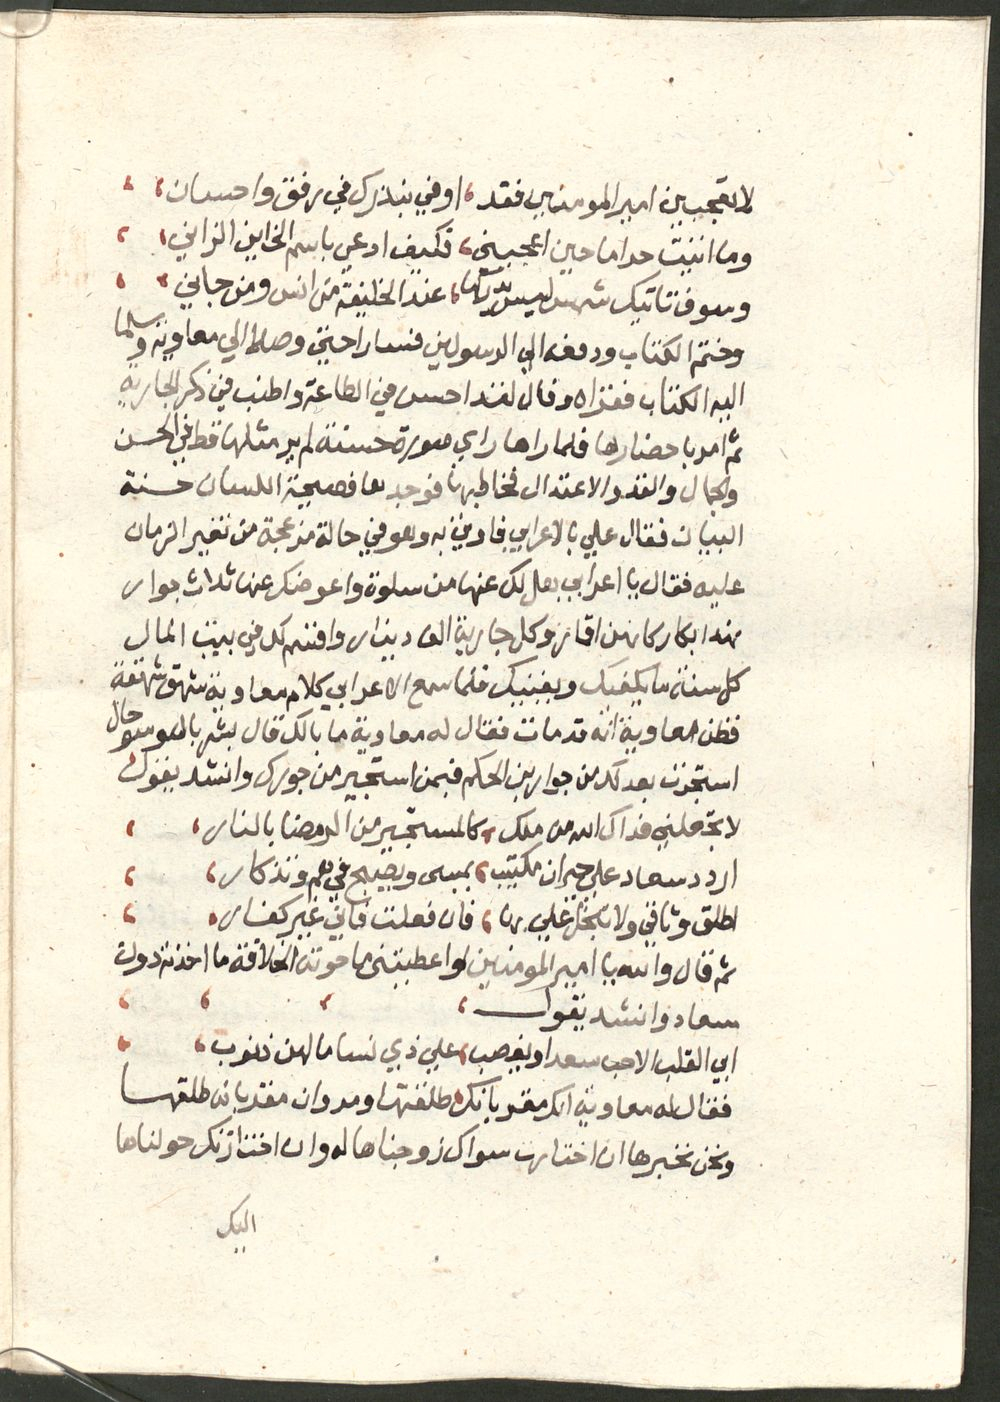 لا تعجبين امير المومنين فقد، اوفي بنذرك في رفق واحسان،
وما اتيت حراما حين اعجبني، فكيف ادعي باسم الخاين الزاني،
وسوف تاتيك شمس ليس يدركها، عند الخليفة من انس ومن جاني،
وختم الكتاب ودفعه الي الرسولين فسارا حتي وصلا الي معاوية وسلما
اليه الكتاب فقراه وقال لقد احسن في الطاعة واطنب في ذكر الجارية
ثم امر باحضارها فلما راها راي صورة حسنة لم ير مثلها قط في الحسن
والجمال والقد والاعتدال فخاطبها فوجدها فصيحة اللسان حسنة
البيان فقال علي بالاعرابي فاوتي به وهو في حالة مزعجة من تغير الزمان
عليه فقال يا اعرابي هل لك عنها من سلوة واعوضك عنها ثلاث جوار
نهدا بكار كانهن اقمار وكل جارية الف دينار واقسم لك في بيت المال
كل سنة ما يكفيك ويغنيك فلما سمع الاعرابي كلام معاوية شهق شهقة
فظن معاوية انه قد مات فقال له معاوية ما بالك قال بشر بال وسو حال
استجرت بعدلك من جور ابن الحكم فبمن استجير من جورك وانشد يقول
لا تجعلني فداك الله من ملك، كالمستجير من الرمضا بالنار،
اردد سعاد علي حيران مكتيب، يمسي ويصبح في هم وتذكار،
اطلق وثاقي ولا تبخل علي بها، فان فعلت فاني غير كفار،
ثم قال والله يا امير المومنين لو اعطيتني ما حوته الخلافة ما اخذته دون
سعاد وانشد يقول،
ابي القلب الا حب سعدا وبغضت، علي ذي نسا ما لهن ذنوب،
فقال له معاوية انك مقر بانك طلقتها ومروان مقر بانه طلقها
ونحن نخيرها ان اختارت سواك زوجناها له وان اختارتك حولناها
اليك